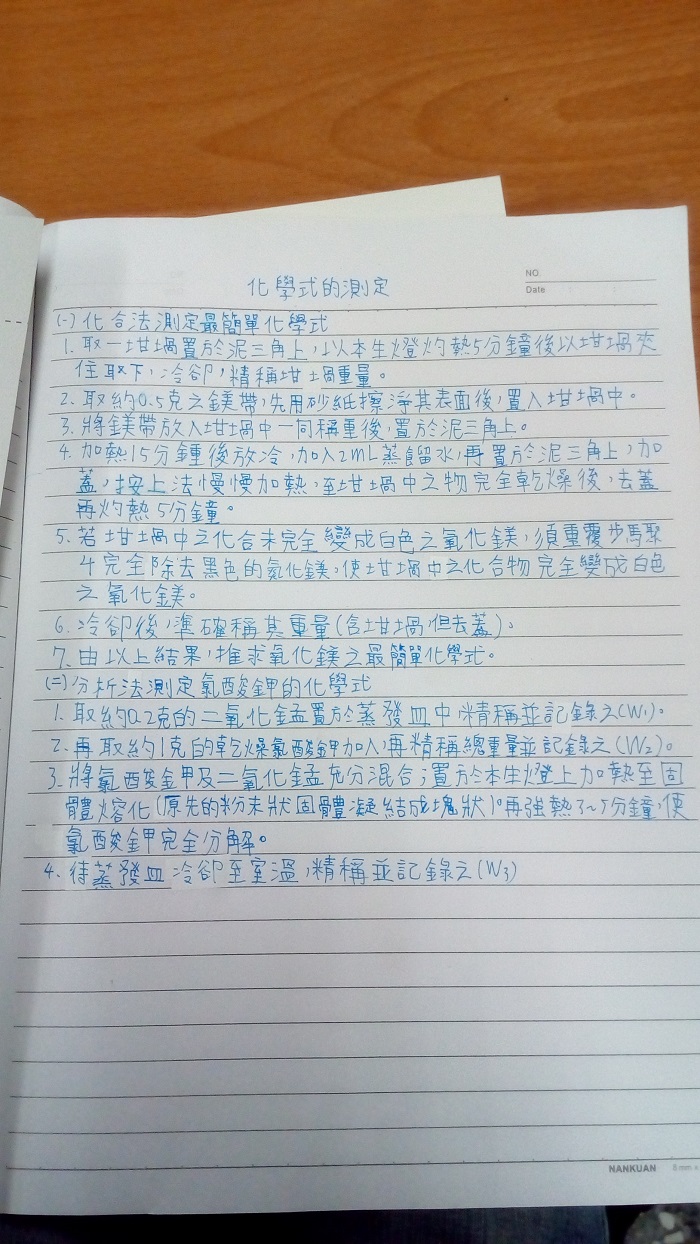 NO.
Date
化學式的測定
(一)化合法測定最簡單化學式
1. 取一坩堝置於泥三角上,以本生燈灼熱5分鐘後以坩堝夾
住取下,冷卻,精稱坩堝重量。
2. 取約0.5克之鎂帶,先用砂紙擦淨其表面後,置入坩堝中。
3. 將鎂帶放入坩堝中一同稱重後,置於泥三角上。
4. 加熱15分鍾後放冷,加入2mL蒸餾水,再置於泥三角上,加
蓋,按上法慢慢加熱,至坩堝中之物完全乾燥後,去蓋
再灼熱5分鐘。
5. 若坩堝中之化合未完全變成白色之氧化鎂,須重覆步驟
4完全除去黑色的氮化鎂,使坩堝中之化合物完全變成白色
之氧化鎂。
6. 冷卻後,準確稱其重量(含坩堝,但去蓋)。
7. 由以上結果,推求氧化鎂之最簡單化學式。
(二)分析法測定氯酸鉀的化學式
1. 取約0.2克的二氧化錳置於蒸發皿中精稱並記錄之(W₁)。
2. 再取約1克的乾燥氯酸鉀加入,再精稱總重量並記錄之(W₂)。
3. 將氯酸鉀及二氧化錳充分混合;置於本生燈上加熱至固
體熔化(原先的粉末狀固體凝結成塊狀)。再強熱3~5分鐘,使
氯酸鉀完全分解。
4. 待蒸發皿冷卻至室溫,精稱並記錄之(W₃)
NANKUAN
8 mm ×